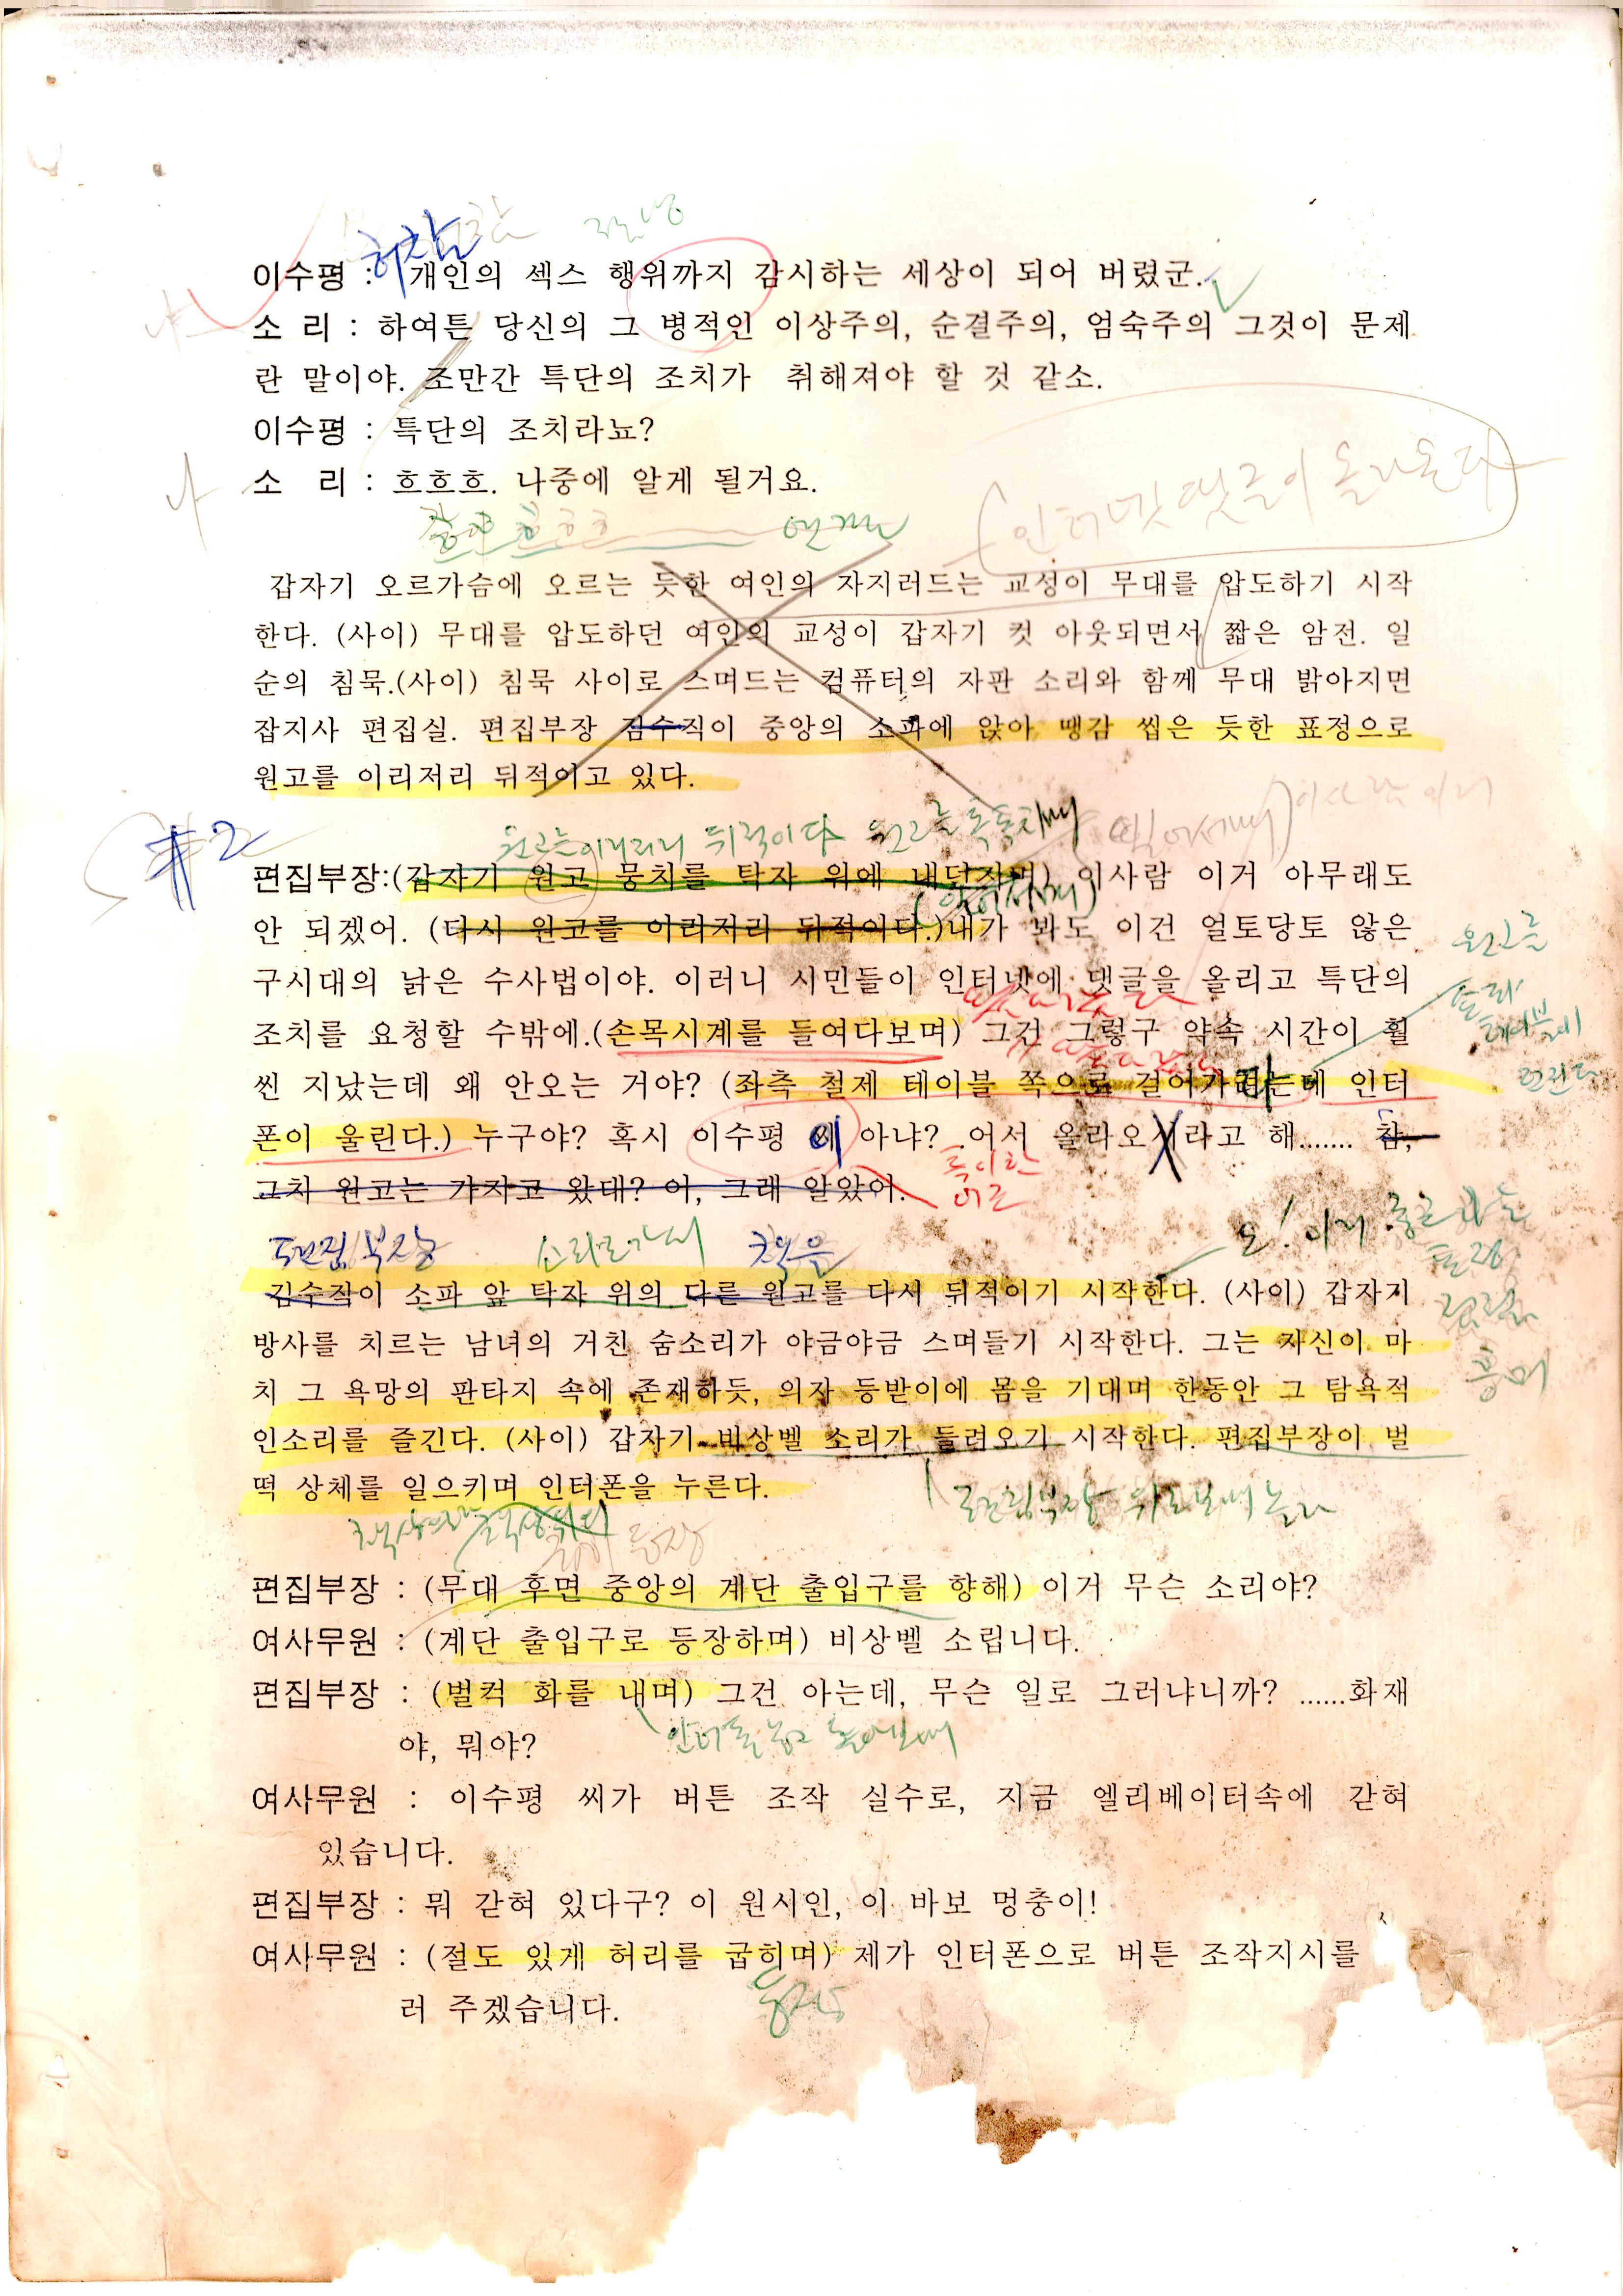 허참
이수평 : 개인의 섹스 행위까지 감시하는 세상이 되어 버렸군.
소 리 : 하여튼 당신의 그 병적인 이상주의, 순결주의, 엄숙주의 그것이 문제
란 말이야. 조만간 특단의 조치가 취해져야 할 것 같소.
이수평 : 특단의 조치라뇨?
소 리 : 흐흐흐. 나중에 알게 될거요.
(인터넷 댓글이 올라온다)
갑자기 오르가슴에 오르는 듯한 여인의 자지러드는 교성이 무대를 압도하기 시작
한다. (사이) 무대를 압도하던 여인의 교성이 갑자기 컷 아웃되면서 짧은 암전. 일
순의 침묵.(사이) 침묵 사이로 스며드는 컴퓨터의 자판 소리와 함께 무대 밝아지면
잡지사 편집실. 편집부장 김수직이 중앙의 소파에 앉아 땡감 씹은 듯한 표정으로
원고를 이리저리 뒤적이고 있다.
#2
원고를 이리저리 뒤적이다 원고를
편집부장:(갑자기 원고 뭉치를 탁자 위에 내던지며) 이사람 이거 아무래도
안 되겠어. (다시 원고를 이리저리 뒤적이다.)내가 봐도 이건 얼토당토 않은
원고를
구시대의 낡은 수사법이야. 이러니 시민들이 인터넷에 댓글을 올리고 특단의
조치를 요청할 수밖에.(손목시계를 들여다보며) 그건 그렇구 약속 시간이 훨
테이블에
던진다
씬 지났는데 왜 안오는 거야? (좌측 철제 테이블 쪽으로 걸어가는데 인터
폰이 울린다.) 누구야? 혹시 이수평 이 아냐? 어서 올라오시라고 해....... 참,
그치 원고는 가지고 왔대? 어, 그래 알았어.
편집부장 소리로가서 책을
김수직이 소파 앞 탁자 위의 다른 원고를 다시 뒤적이기 시작한다. (사이) 갑자기
방사를 치르는 남녀의 거친 숨소리가 야금야금 스며들기 시작한다. 그는 자신이 마
치 그 욕망의 판타지 속에 존재하듯, 의자 등받이에 몸을 기대며 한동안 그 탐욕적
흥미
인소리를 즐긴다. (사이) 갑자기 비상벨 소리가 들려오기 시작한다. 편집부장이 벌
떡 상체를 일으키며 인터폰을 누른다.
등장
편집부장 : (무대 후면 중앙의 계단 출입구를 향해) 이거 무슨 소리야?
여사무원 : (계단 출입구로 등장하며) 비상벨 소립니다.
편집부장 : (벌컥 화를 내며) 그건 아는데, 무슨 일로 그러냐니까? ......화재
야, 뭐야?
여사무원 : 이수평 씨가 버튼 조작 실수로, 지금 엘리베이터속에 갇혀
있습니다.
편집부장 : 뭐 갇혀 있다구? 이 원시인, 이 바보 멍충이!
여사무원 : (절도 있게 허리를 굽히며) 제가 인터폰으로 버튼 조작지시를
러 주겠습니다.